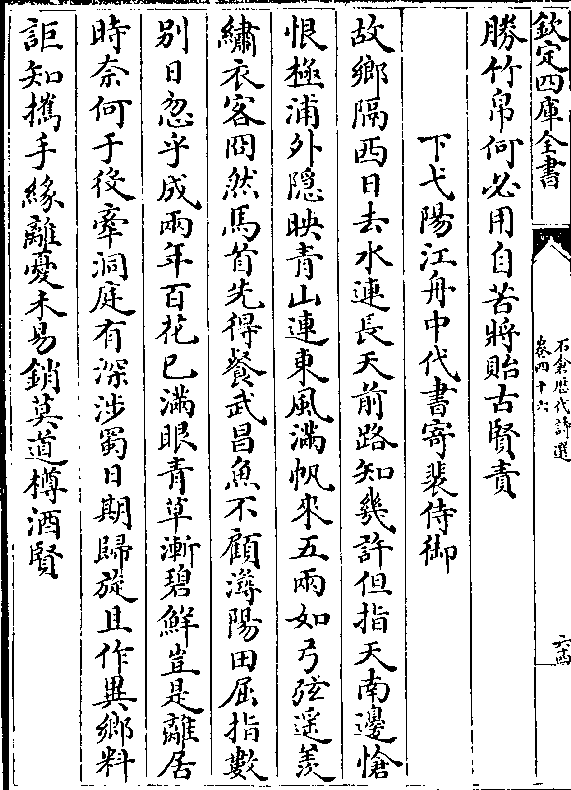 欽定四庫全書
石倉歷代詩選
卷四十六
勝竹帛何必用自苦將貽古賢責
下弋陽江舟中代書寄裴侍御
故鄉隔西日去水連長天前路知幾許但指天南邊愴
恨極浦外隱映青山連東風滿帆來五兩如弓弦遥羨
繡衣客冏然馬首先得餐武昌魚不顧潯陽田屈指數
别日忽乎成兩年百花已滿眼青草漸碧鮮豈是離居
時奈何于役牽洞庭有深涉蜀日期歸旋且作異鄉料
詎知攜手緣離憂未易銷莫道樽酒賢